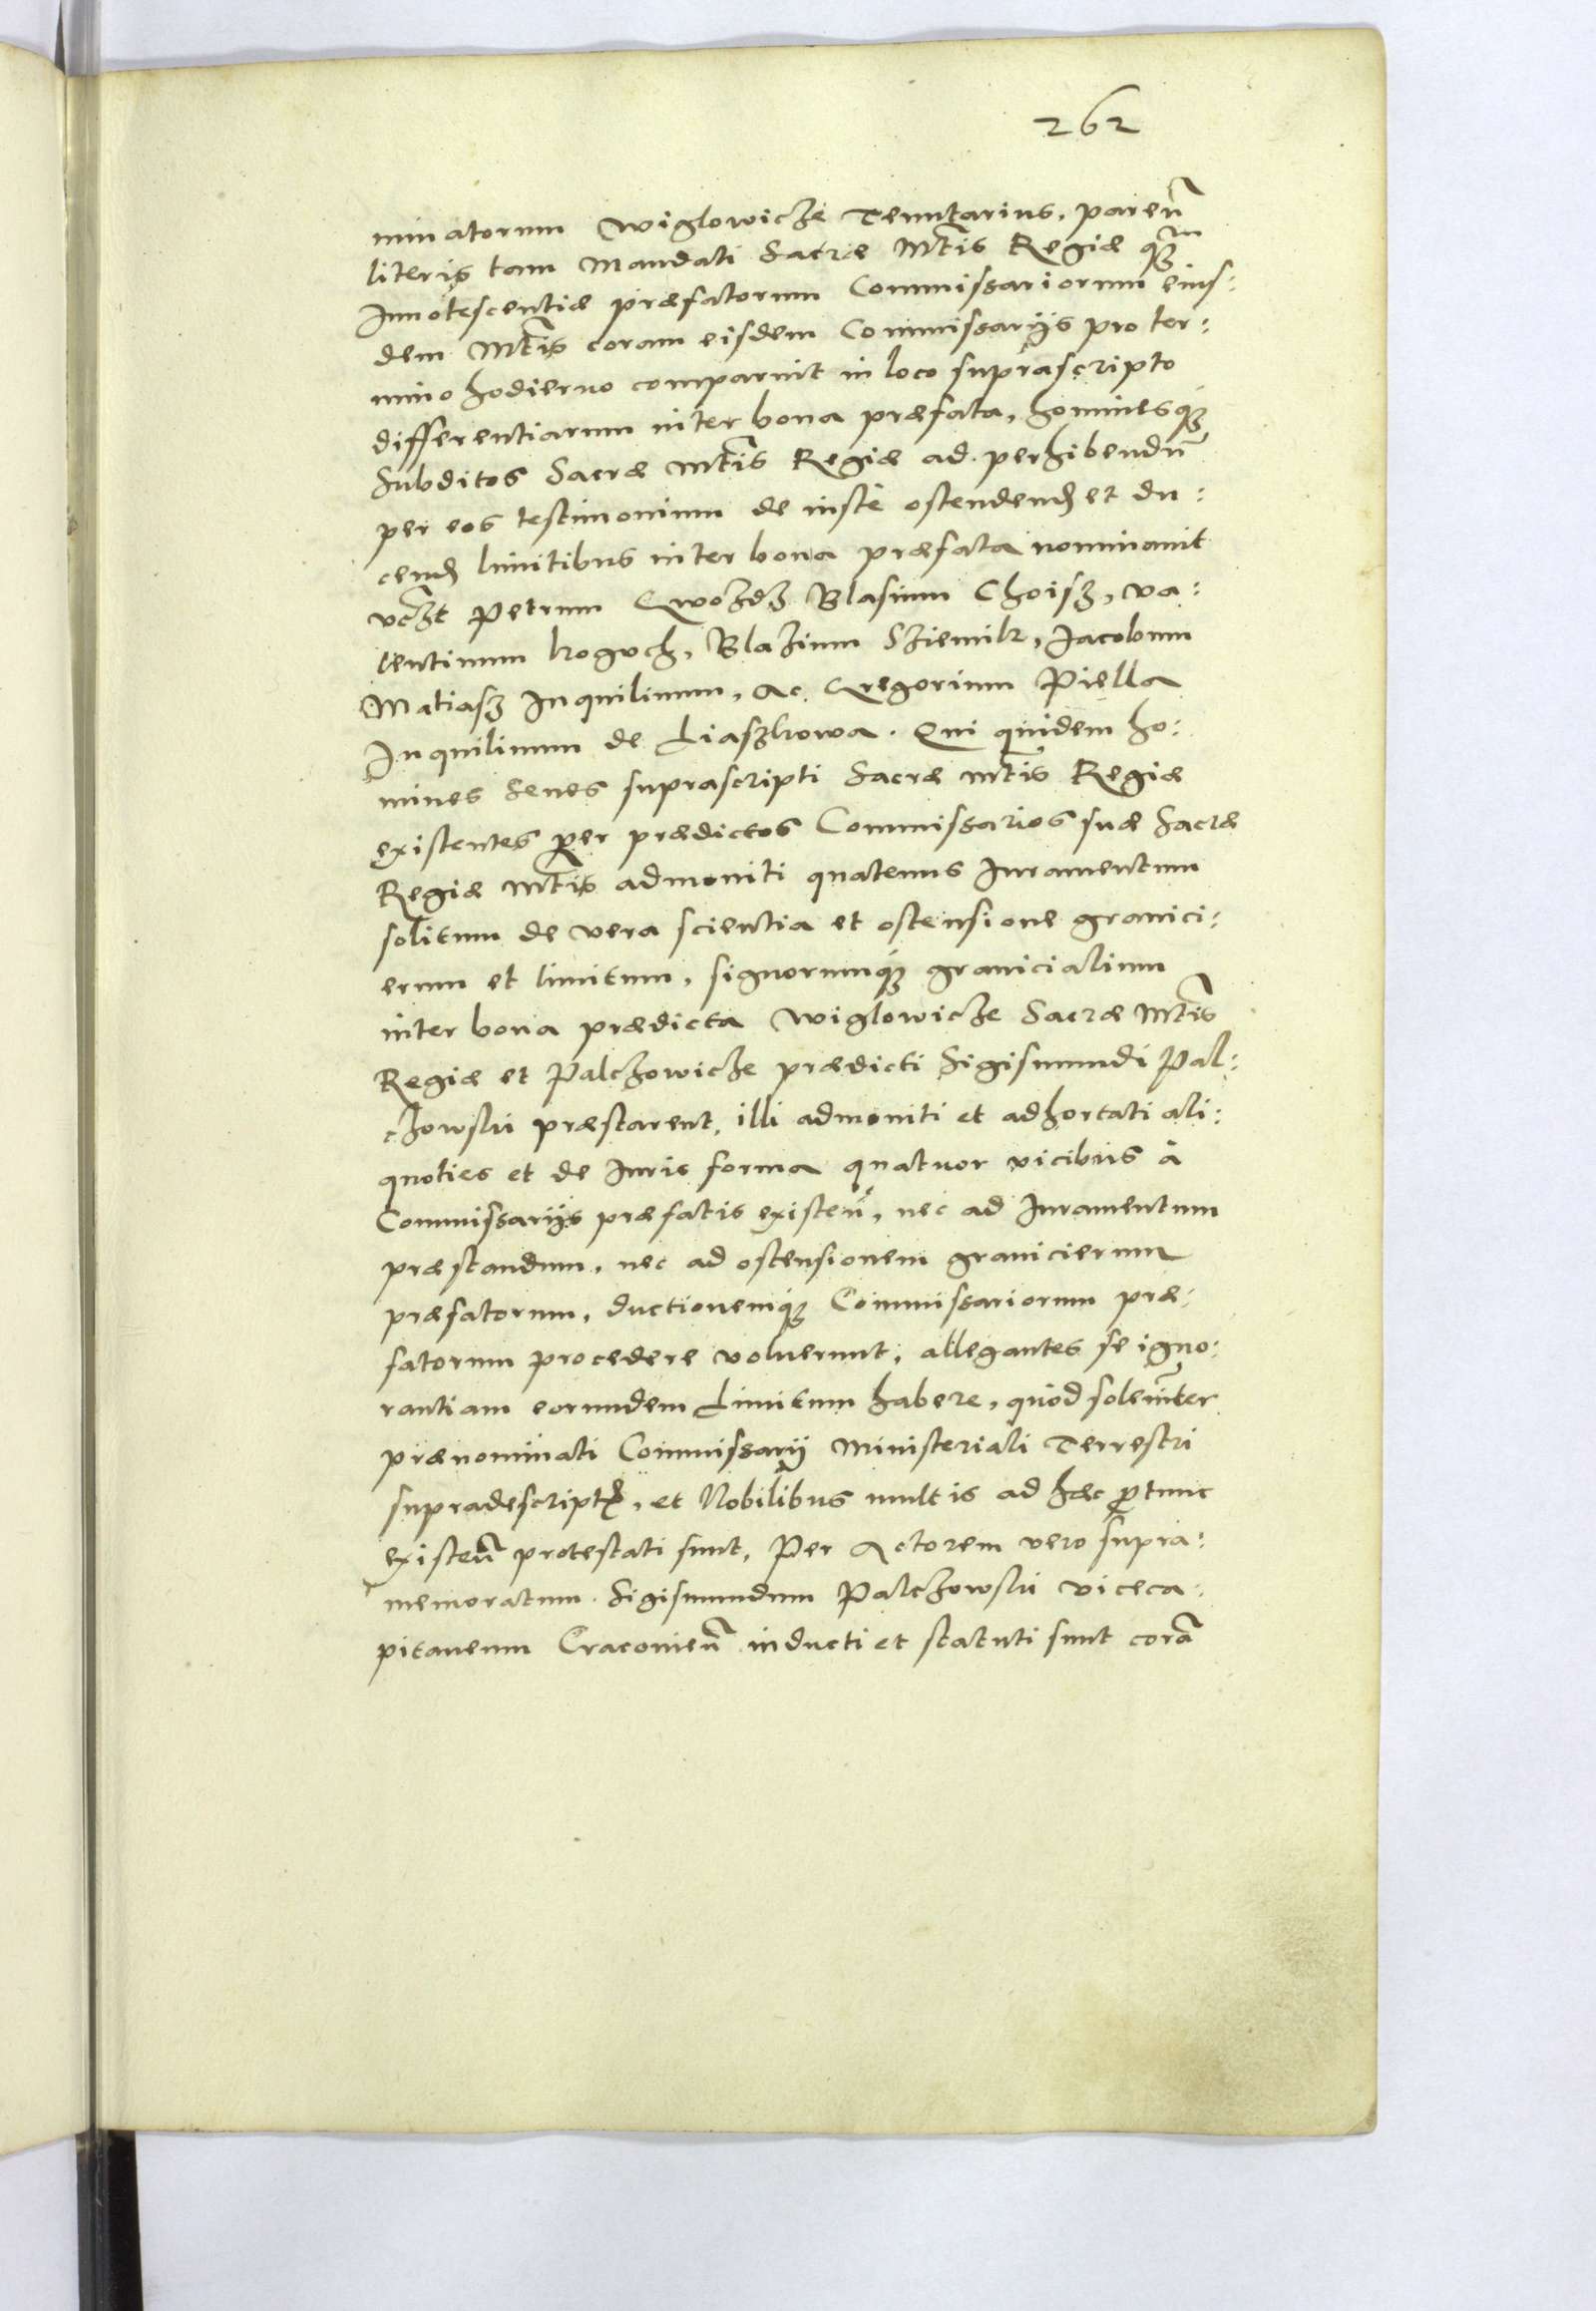 262
minatorum Wiglowicze Tenutarius, pareñ
literis tam Mandati Sacræ Mtis Regiæ qm̃
Innotescentiæ præfatorum Commissariorum eius:
dem Mtis coram eisdem Commissarijs pro ter:
mino hodierno comparuit in loco suprascripto
differentiarum inter bona præfata, hominesq́ꝫ
Subditos Sacræ Mtis Regiæ ad perhibendũ
per eos testimonium de iuste ostendenđ et du:
cenđ limitibus inter bona præfata nominauit
vcꝫt Petrum Gwozdz Blasium Choisz, Va:
lentinum koguch, Blazium Sziemik, Jacobum
Matiasz Inquilinum, Ac Gregorium Piella
Inquilinum de Liaszkowa. Qui quidem ho:
mines Senes suprascripti Sacræ Mtis Regiæ
existentes per prædictos Commissarios suæ Sacræ
Regiæ Mtis admoniti quatenus Iuramentum
solitum de vera scientia et ostensione granici:
erum et limitum, signorumq́ꝫ granicialium
inter bona prædicta Wiglowicze Sacræ Mtis
Regiæ et Palczowicze prædicti Sigismundi Pal:
czowski præstarent, illi admoniti et adhortati ali:
quoties et de Iuris forma quatuor vicibus à
Commissarijs præfatis existeñ, nec ad Iuramentum
præstandum, nec ad ostensionem granicierum
præfatorum, ductionemq́ꝫ Commissariorum præ:
fatorum procedere voluerunt, allegantes se igno:
rantiam eorundem Limitum habere, quod solem̃ter
prænominati Commissarij Ministeriali Terrestri
supradescript, et Nobilibus multis ad hæc ꝓtunc
existeñ protestati sunt, Per Actorem vero supra:
memoratum Sigismundum Palczowski viceca:
pitaneum Cracovieñ inducti et statuti sunt corã